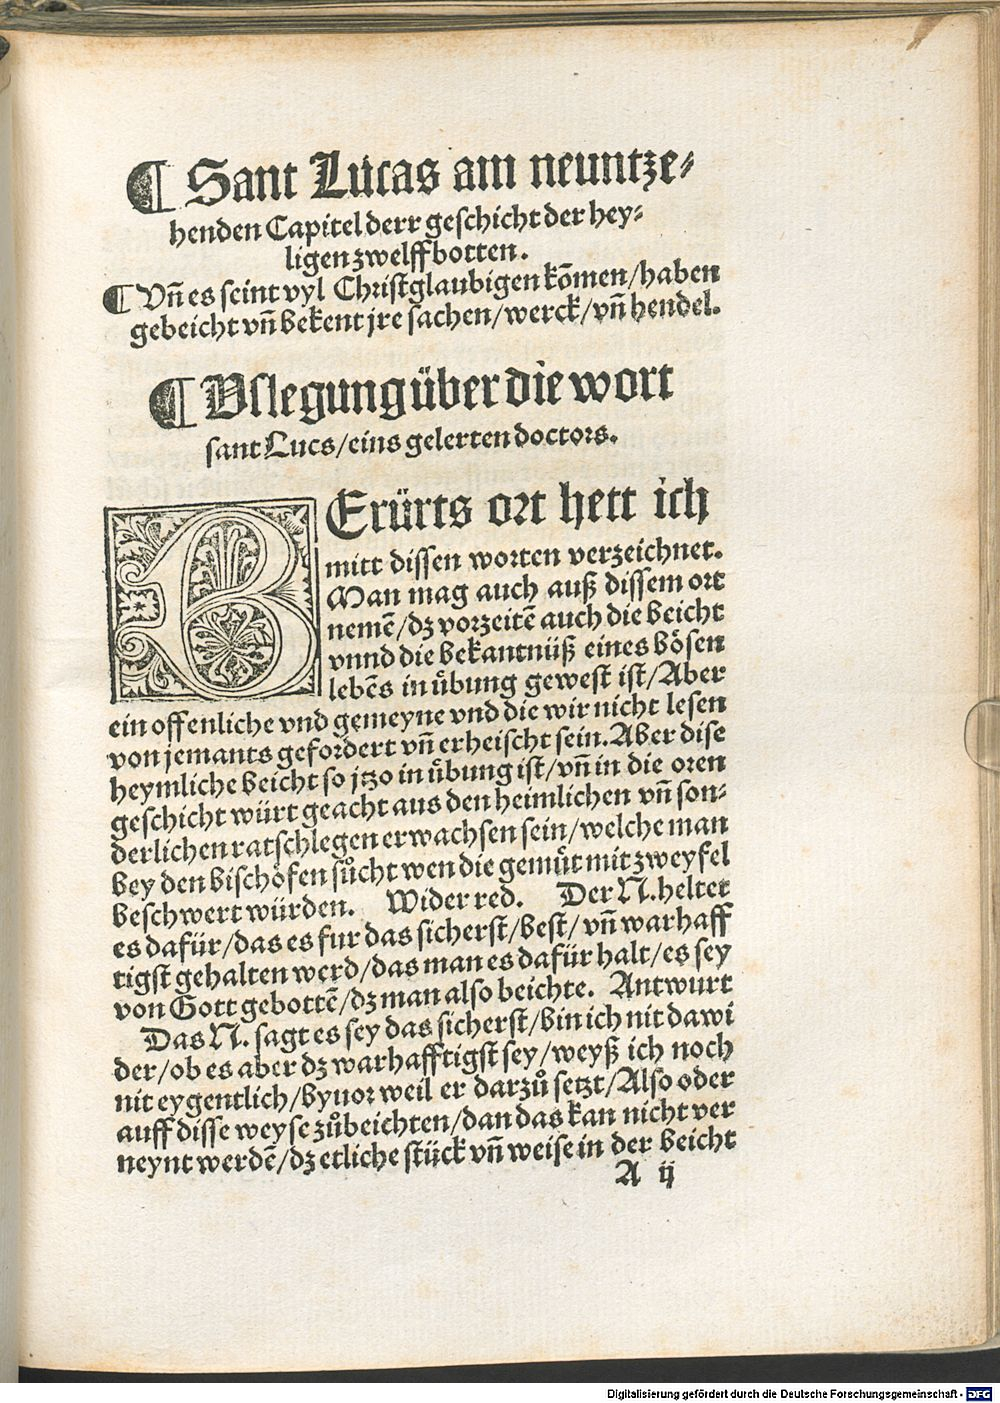 ¶ Sant Lucas am neuntze⸗
henden Capitel derr geschicht der hey⸗
ligen zwelffbotten.
¶ Vñ es seint vyl Christglaubigen kõmen/haben
gebeicht vñ bekent jre sachen/werck/vñ hendel.
¶ Vslegung über die wort
sant Lucs/eins gelerten doctors.
BErürts ort hett ich
mitt dissen worten verzeichnet.
Man mag auch auß dissem ort
nemē/dz vorzeitē auch die beicht
vnnd die bekantnüß eines bösen
lebēs in uͤbung gewest ist/Aber
ein offenliche vnd gemeyne vnd die wir nicht lesen
von jemants gefordert vñ erheischt sein. Aber dise
heymliche beicht so jtzo in uͤbung ist/vñ in die oren
geschicht würt geacht aus den heimlichen vñ son⸗
derlichen ratschlegen erwachsen sein/welche man
bey den bischöfen suͦcht wen die gemuͤt mit zweyfel
beschwert würden. Wider red. Der N. heltet
es dafür/das es fur das sicherst/best/vñ warhaff
tigst gehalten werd/das man es dafür halt/es sey
von Gott gebottē/dz man also beichte. Antwurt
Das N. sagt es sey das sicherst/bin ich nit dawi
der/ob es aber dz warhafftigst sey/weyß ich noch
nit eygentlich/byuor weil er darzuͦ setzt/Also oder
auff disse weyse zuͦbeichten/dan das kan nicht ver
neynt werdē/dz etliche stück vñ weise in der beicht
A ij
Digitalisierung gefördert durch die Deutsche Forschungsgemeinschaft - DFG